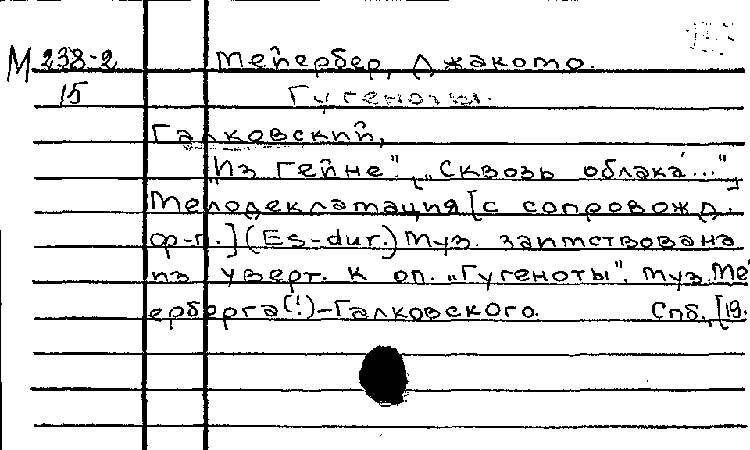 М 238-2 Мейербер, Джакомо.
15 Гугеноты.
Галковский,
"Из Гейне", ["Сквозь облака..."]
Мелодекламация [с сопровожд.
ф-п.] (Es-dur.) Муз. заимствована
из уверт. к оп. "Гугеноты". Муз. Ме
ерберга (!)-Галковского. Спб., [19.